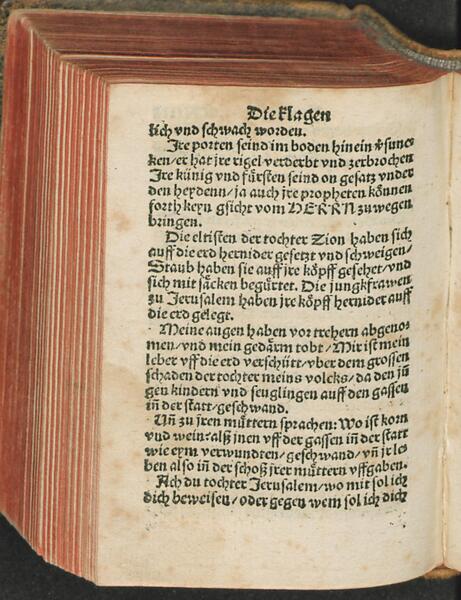 Die klagen
lich vnd schwach worden.
Jre porten seind im boden hinein v̊suncken/
ken/er hat jre rigel verderbt vnd zerbrochen
Jre künig vnd fürsten seind on gesatz vnder
den heydenn/ja auch jre propheten können
forth keyn gsicht vom HERRN zuwegen
bringen.
Die eltisten der tochter Zion haben sich
auff die erd hernider gesetzt vnd schweigen/
Staub haben sie auff jre köpff gesehet/vnd
sich mit säcken begürtet. Die jungkfrawen
zu Jerusalem haben jre köpff hernider auff
die erd gelegt.
Meine augen haben vor trehern abgeno-
men/vnd mein gedärm tobt/Mir ist mein
leber vff die erd verschütt/vber dem grossen
schaden der tochter meins volcks/da den jū
gen kindern vnd seuglingen auff den gassen
in̄ der statt/geschwand.
Vn̄ zu jren müttern sprachen: Wo ist korn
vnd wein: alß jnen vff der gassen in̄ der statt
wie eym verwundten/geschwand/vn̄ jr le
ben also in̄ der schoß jrer müttern vffgaben.
Ach du tochter Jerusalem/wo mit sol ich
dich beweisen/oder gegen wem sol ich dich